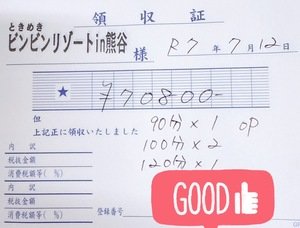 領収証
ときめき
ビンビンリゾートin熊谷
様
R7年7月12日
★ ¥70800-
但 90分×1 OP
上記正に領収いたしました
100分×2
内訳
120分×1
税抜金額
消費税額等(%)
税抜金額
消費税額等(%)
登録番号
GOOD